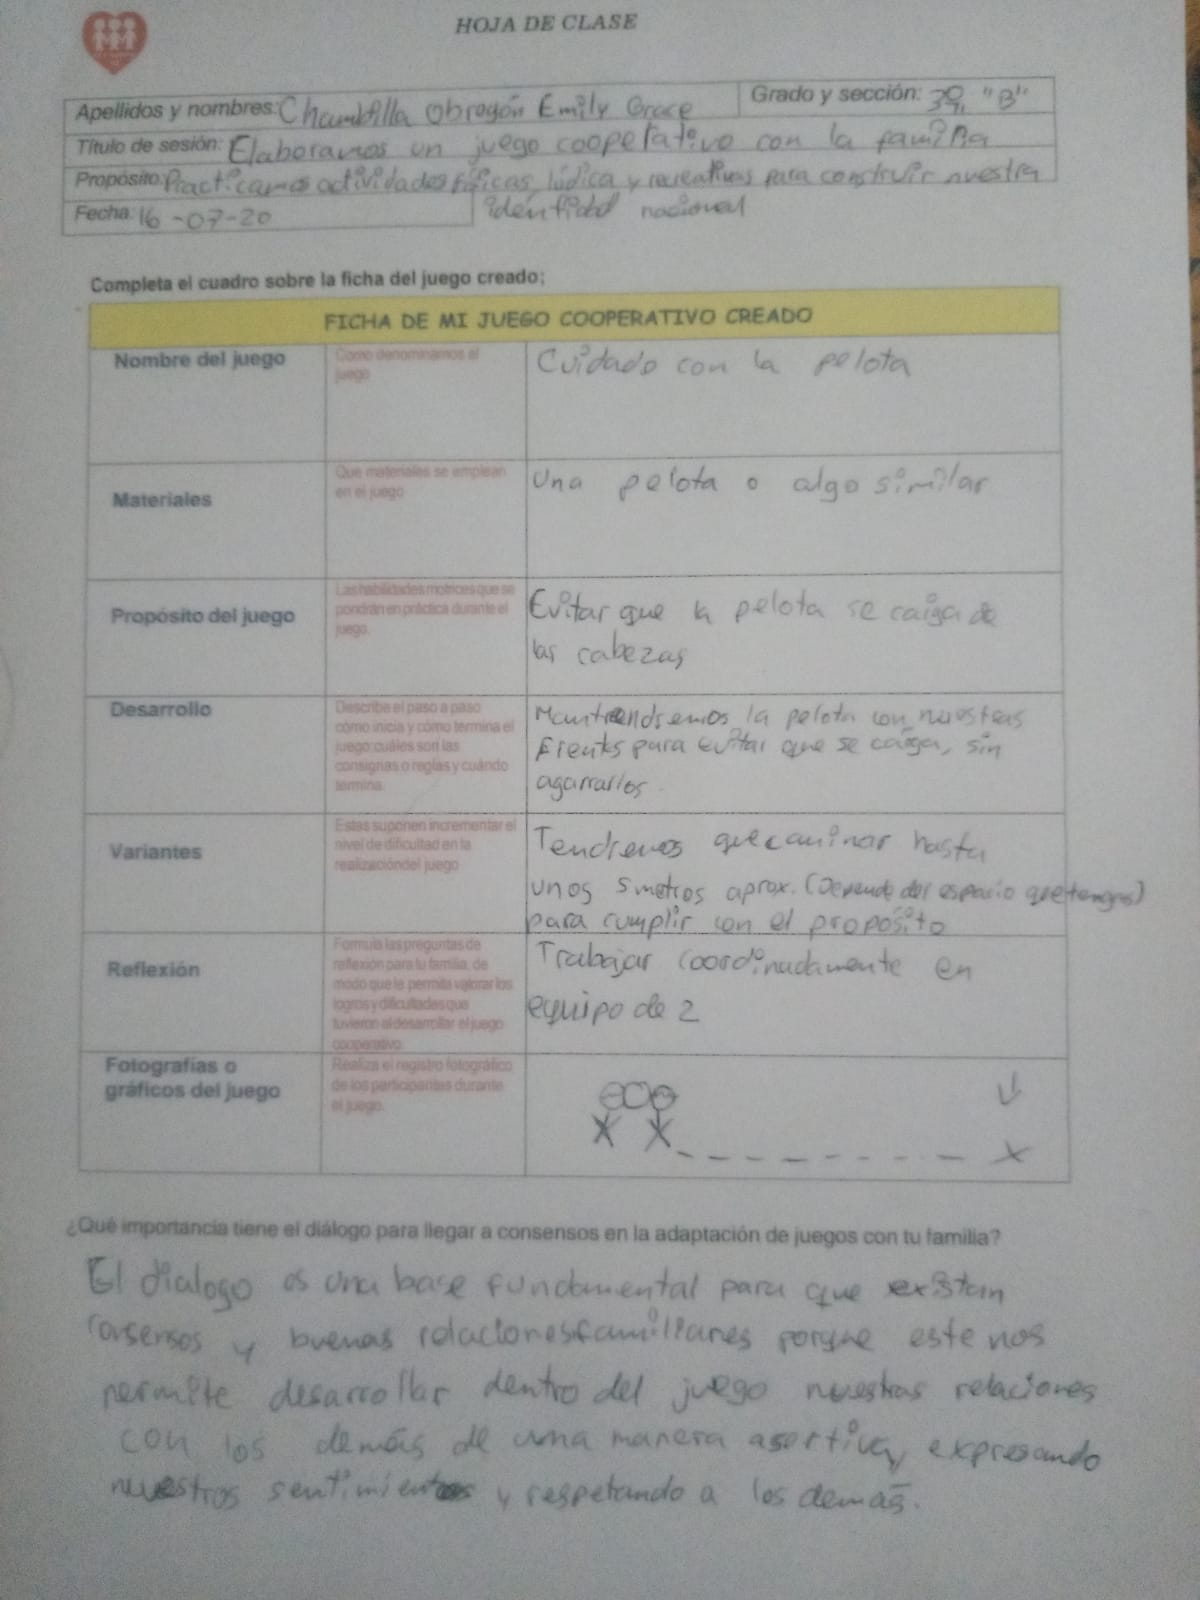 HOJA DE CLASE
Apellidos y nombres: Chambilla Obregón Emily Grace
Grado y sección: 3º, "B"
Título de sesión: Elaboramos un juego cooperativo con la familia
Propósito: Practicamos actividades físicas, lúdica y recreativas para construir nuestra
identidad nacional
Fecha: 16-07-20
Completa el cuadro sobre la ficha del juego creado;
FICHA DE MI JUEGO COOPERATIVO CREADO
Nombre del juego
Como denominamos al
juego
Cuidado con la pelota
Materiales
Que materiales se emplean
en el juego
Una pelota o algo similar
Propósito del juego
Las habilidades motrices que se
pondrán en práctica durante el
juego.
Evitar que la pelota se caiga de
las cabezas
Desarrollo
Describe el paso a paso
cómo inicia y cómo termina el
juego: cuáles son las
consignas o reglas y cuándo
termina.
Mantrendremos la pelota con nuestras
frentes para evitar que se caiga, sin
agarrarlos.
Variantes
Estas suponen incrementar el
nivel de dificultad en la
realizacióndel juego
Tendremos que caminar hasta
unos 5 metros aprox. (Depende del espacio que tengas)
para cumplir con el propósito
Reflexión
Formula las preguntas de
reflexión para tu familia, de
modo que le permita valorar los
logros y dificultades que
tuvieron al desarrollar el juego
cooperativo.
Trabajar coordinadamente en
equipo de 2
Fotografías o
gráficos del juego
Realiza el registro fotográfico
de los participantes durante
el juego.
¿Qué importancia tiene el diálogo para llegar a consensos en la adaptación de juegos con tu familia?
El dialogo es una base fundamental para que existan
consensos y buenas relaciones familiares porque este nos
permite desarrollar dentro del juego nuestras relaciones
con los demás de una manera asertiva, expresando
nuestros sentimientos y respetando a los demás.